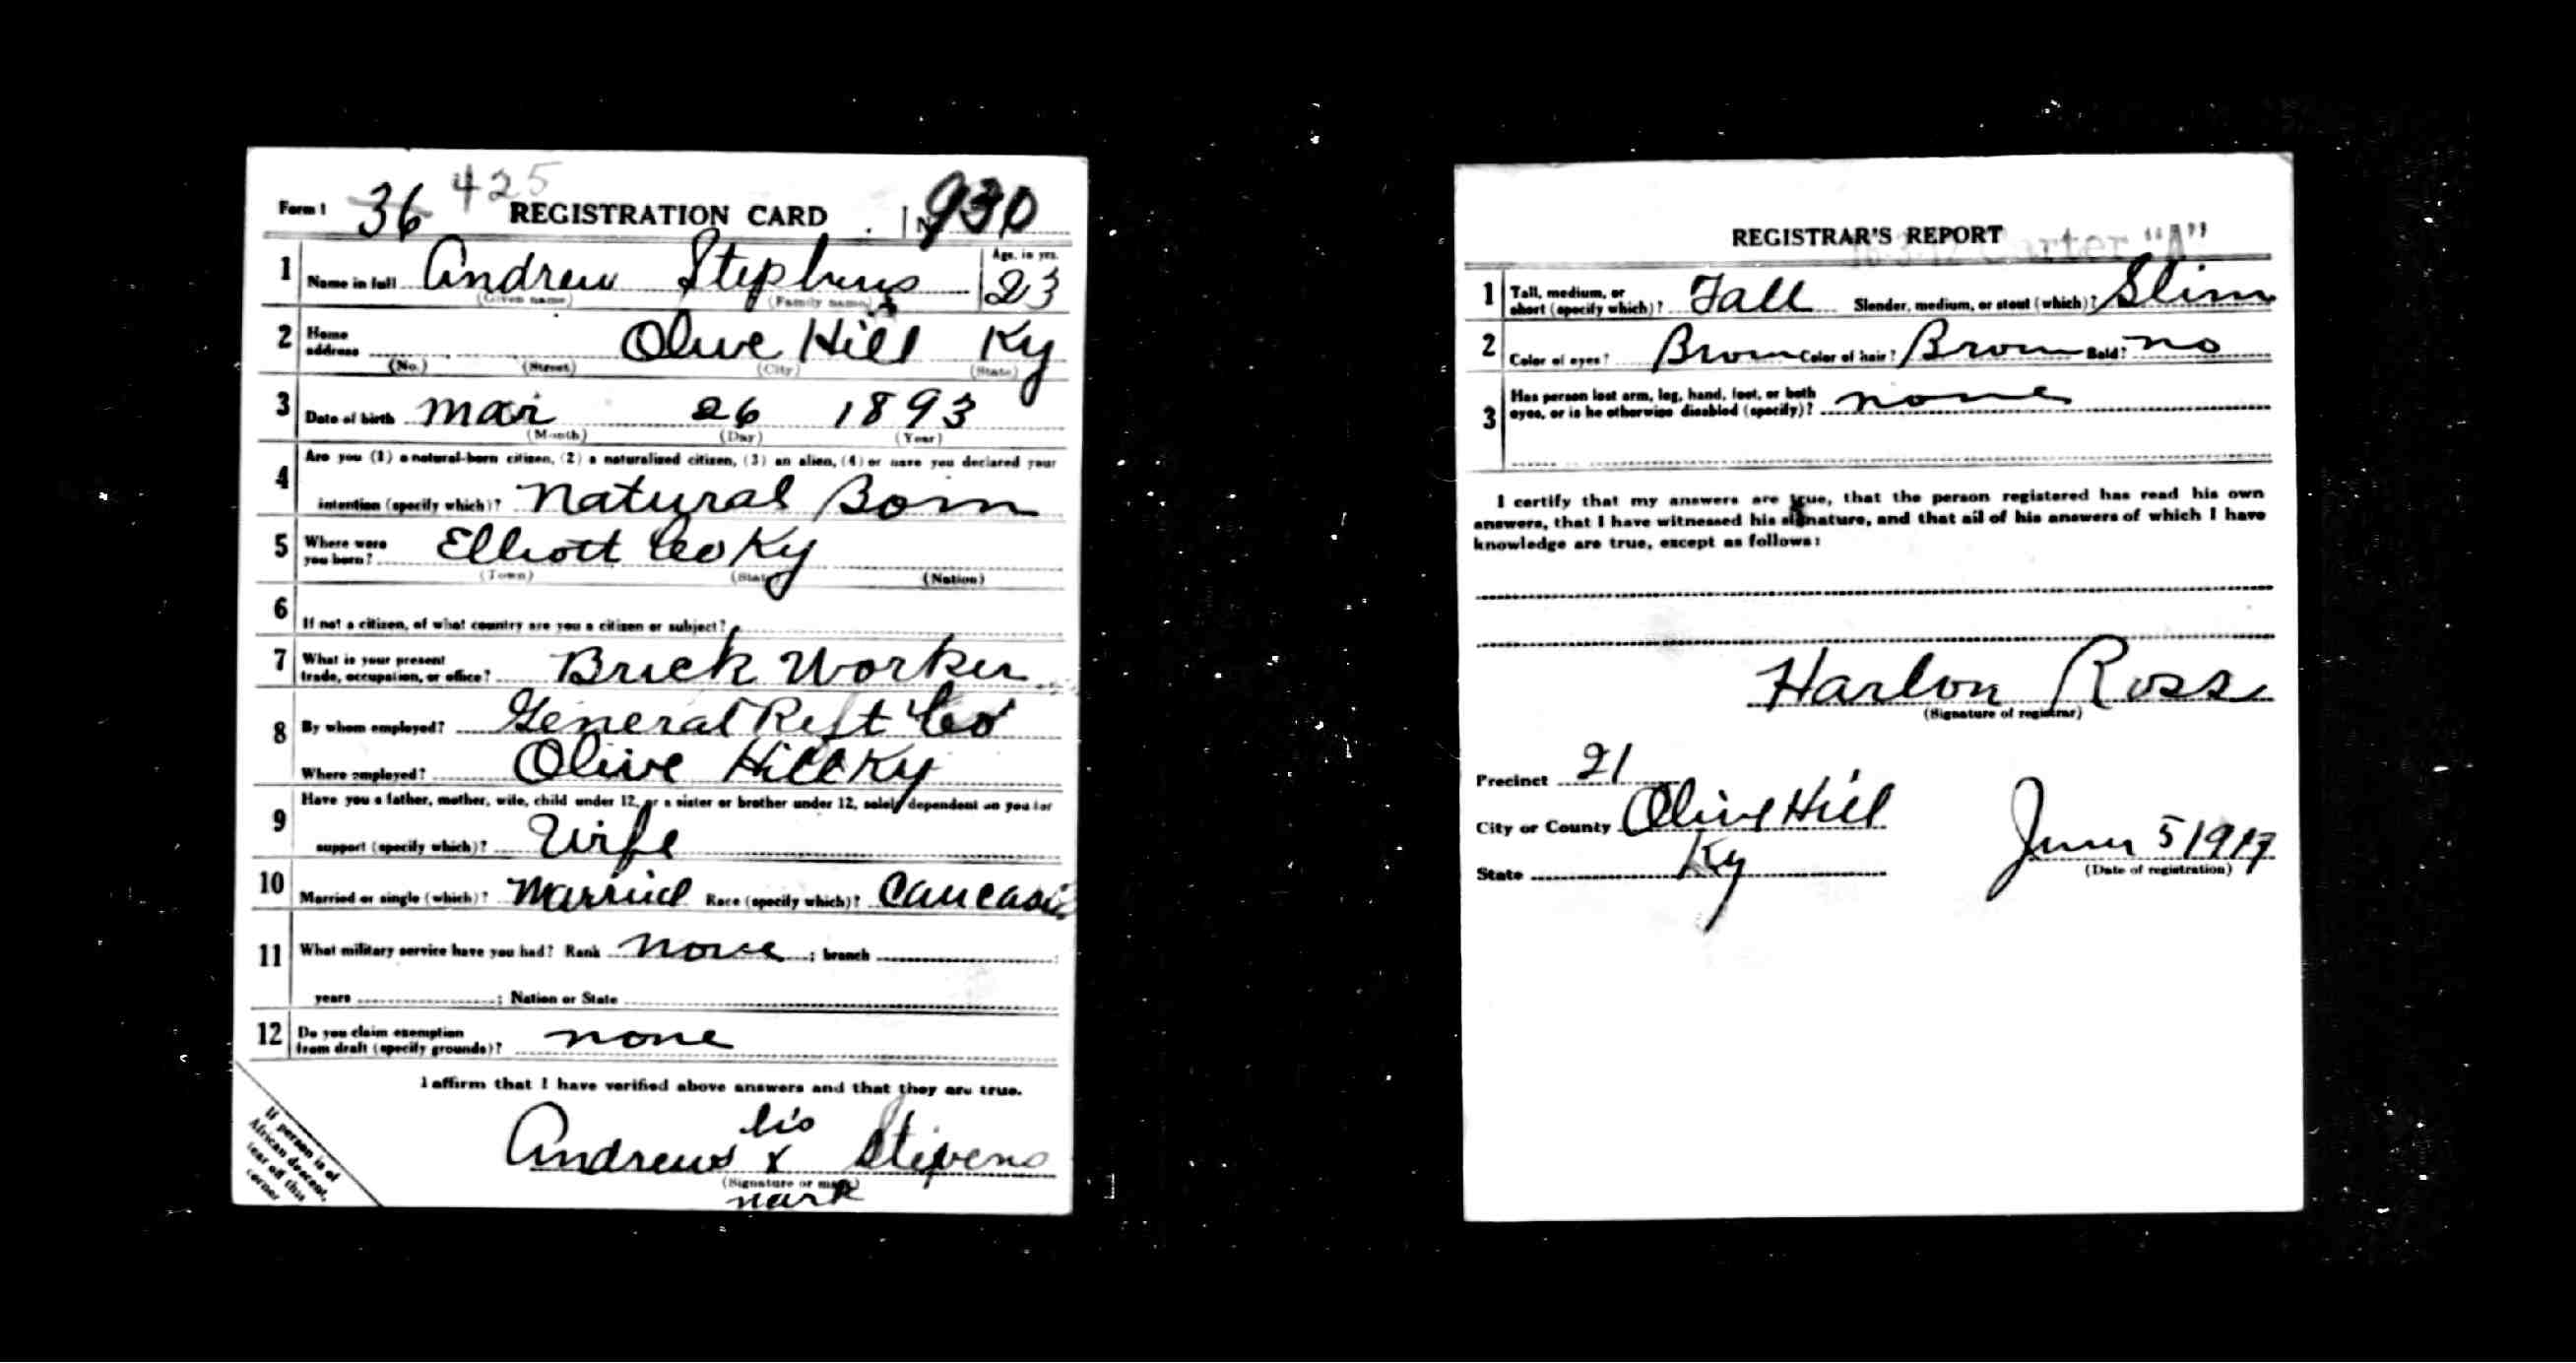 425
Form 1 36 REGISTRATION CARD No. 930
1 Name in full Andrew Stephens Age, in yrs. 23
(Given name) (Family name)
2 Home address Olive Hill Ky
(No.) (Street) (City) (State)
3 Date of birth Mar 26 1893
(Month) (Day) (Year)
4 Are you (1) a natural-born citizen, (2) a naturalized citizen, (3) an alien, (4) or have you declared your
intention (specify which)? Natural Born
5 Where were you born? Elliott Co Ky
(Town) (State) (Nation)
6 If not a citizen, of what country are you a citizen or subject?
7 What is your present trade, occupation, or office? Brick Worker
8 By whom employed? General Reft Co
Where employed? Olive Hill Ky
9 Have you a father, mother, wife, child under 12, or a sister or brother under 12, solely dependent on you for
support (specify which)? Wife
10 Married or single (which)? Married Race (specify which)? Caucasia
11 What military service have you had? Rank none ; branch ;
years ; Nation or State
12 Do you claim exemption from draft (specify grounds)? none
I affirm that I have verified above answers and that they are true.
his
Andrew x Stevens
(Signature or mark)
mark
If person is of
African descent,
tear off this
corner
REGISTRAR'S REPORT
Carter "A"
1 Tall, medium, or short (specify which)? Tall Slender, medium, or stout (which)? Slim
2 Color of eyes? Brown Color of hair? Brown Bald? no
3 Has person lost arm, leg, hand, foot, or both
eyes, or is he otherwise disabled (specify)? none
I certify that my answers are true, that the person registered has read his own
answers, that I have witnessed his signature, and that all of his answers of which I have
knowledge are true, except as follows:
Harlon Ross
(Signature of registrar)
Precinct 21
City or County Olive Hill
State Ky
June 5 1917
(Date of registration)